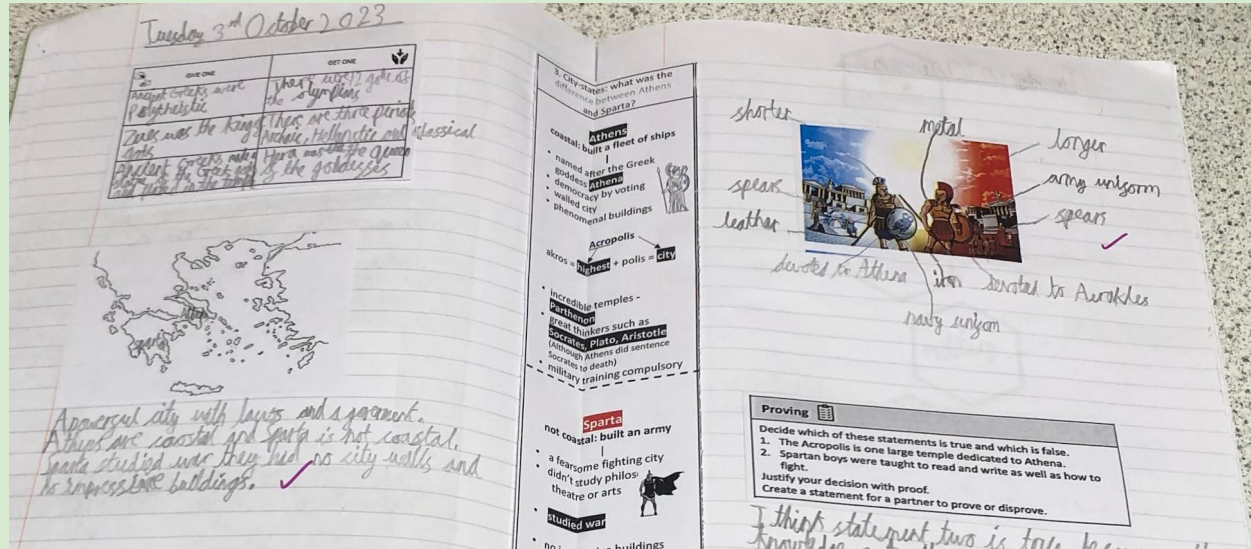 Tuesday 3rd October 2023
GIVE ONE
GET ONE
Ancient Greeks were
Polytheistic
There were 12 gods of
the olympians
Zeus was the king of
gods
There are three periods
Archaic, Hellenistic and classical
Ancient Greeks
Hera was the queen
of the goddesses
A powerful city with laws and a goverment.
Athens are coastal and Sparta is not coastal.
Sparta studied war they had no city walls and
no impressive buildings.
3. City-states: what was the
difference between Athens
and Sparta?
Athens
coastal: built a fleet of ships
• named after the Greek
goddess Athena
• democracy by voting
• walled city
• phenomenal buildings
Acropolis
akros = highest + polis = city
• incredible temples -
Parthenon
• great thinkers such as
Socrates, Plato, Aristotle
(Although Athens did sentence
Socrates to death)
• military training compulsory
Sparta
not coastal: built an army
• a fearsome fighting city
• didn't study philos
theatre or arts
• studied war
buildings
shorter
metal
longer
spears
army uniform
leather
spears
devoted to Athena
iron
devoted to
navy uniform
Proving
Decide which of these statements is true and which is false.
1. The Acropolis is one large temple dedicated to Athena.
2. Spartan boys were taught to read and write as well as how to
fight.
Justify your decision with proof.
Create a statement for a partner to prove or disprove.
I think statement two is true